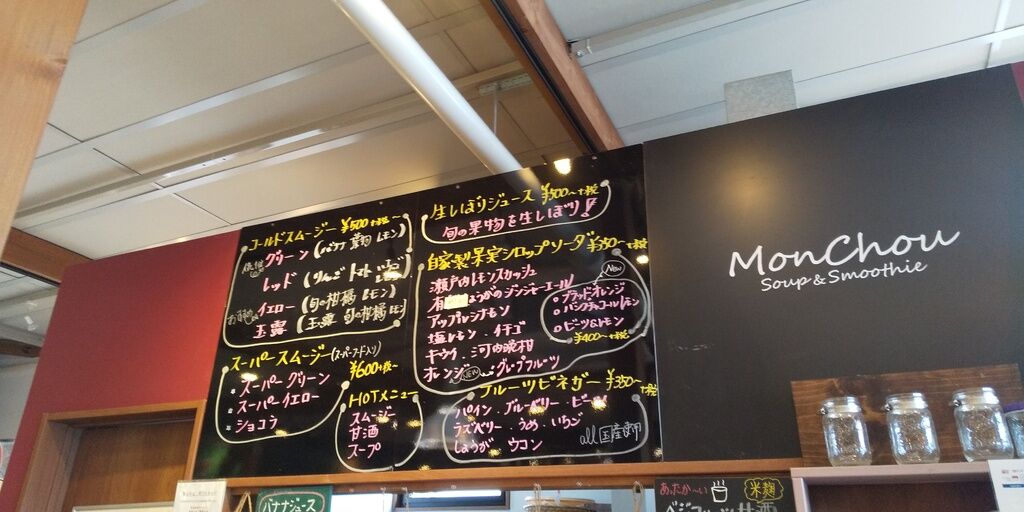 コールドスムージー ¥500+税〜
グリーン (バナナ 葉物 レモン)
レッド (りんご トマト
イエロー (旬の柑橘 レモン)
玉露 (玉露 旬の柑橘 レモン)
スーパースムージー (スーパーフード入り)
¥600+税〜
スーパー グリーン
スーパー イエロー
ショコラ
HOTメニュー
スムージー
甘酒
スープ
生しぼりジュース ¥500〜+税
旬の果物を生しぼり!
自家製果実シロップソーダ ¥350〜+税
瀬戸内レモンスカッシュ
有 しょうがのジンジャーエール
アップルシナモン
塩レモン・イチゴ
キウイ・河内晩柑
オレンジ・ NEW グレープフルーツ
NEW
ブラッドオレンジ
ビーツ&レモン
¥400〜+税
フルーツビネガー ¥350〜+税
パイン・ブルーベリー・ビーツ
ラズベリー・うめ・いちご
しょうが ウコン
all 国産
MonChou
Soup & Smoothie
バナナジュース
あったか〜い
米麹